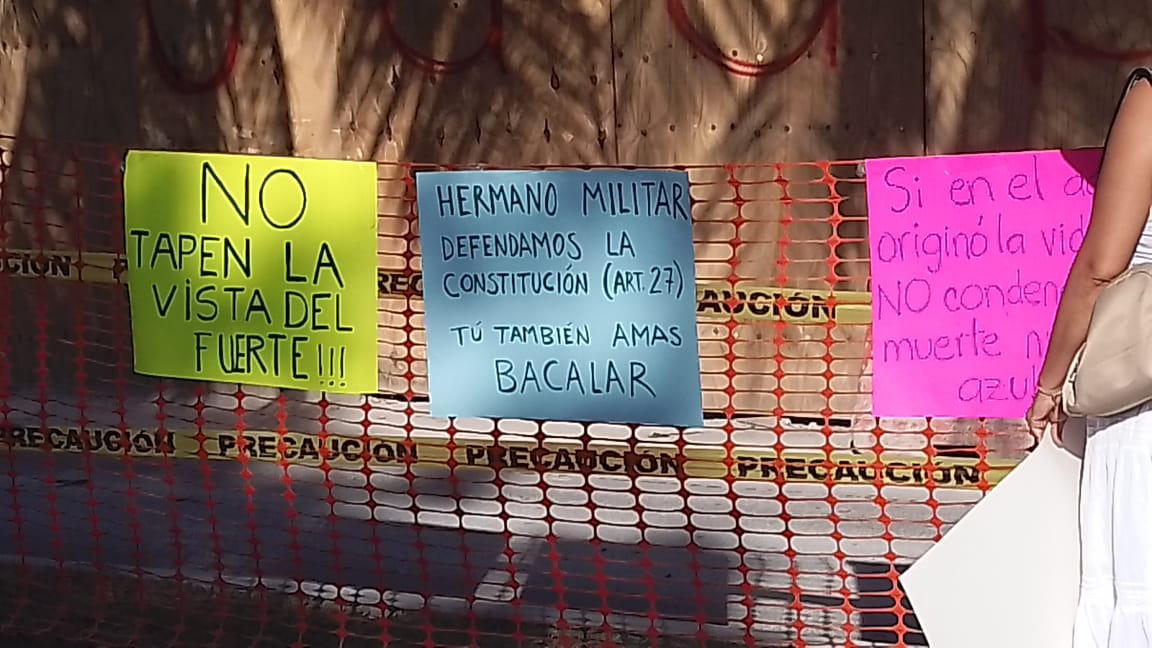 NO
TAPEN LA
VISTA DEL
FUERTE!!!
HERMANO MILITAR
DEFENDAMOS LA
CONSTITUCIÓN (ART. 27)
TÚ TAMBIÉN AMAS
BACALAR
Si en el
originó la
NO
muerte
PRECAUCIÓN PRECAUCIÓN PRECAUCIÓN PRECAUCIÓN